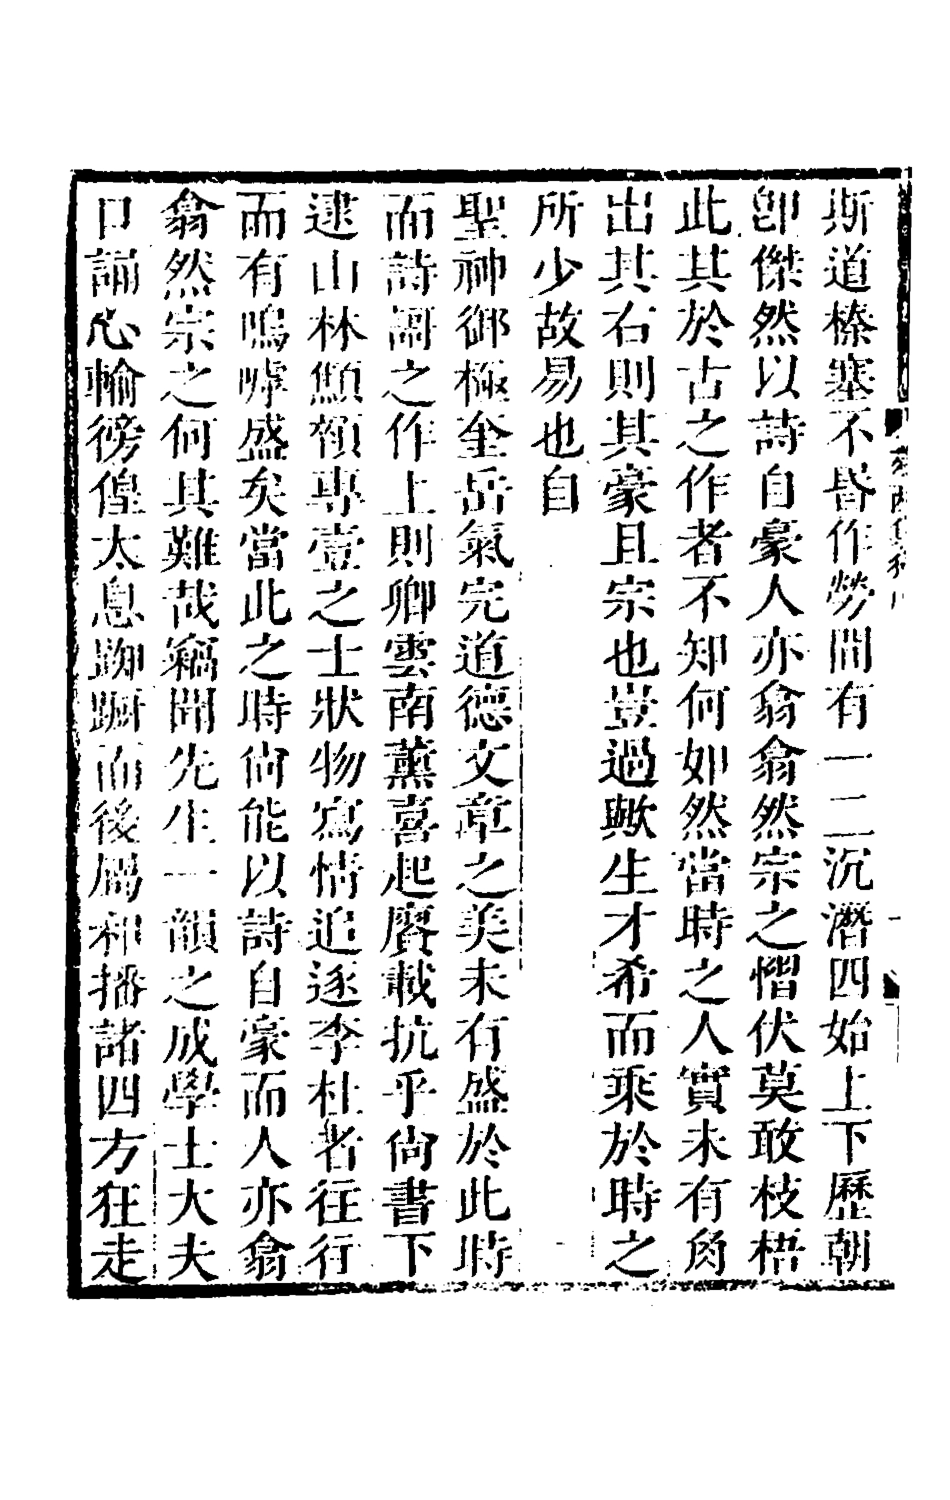 斯道榛塞不昬作勞間有一二沉潛四始上下歷朝
卽傑然以詩自豪人亦翕翕然宗之慴伏莫敢枝梧
此其於古之作者不知何如然當時之人實未有
出其右則其豪且宗也豈過歟生才希而乘於時之
所少故易也自
聖神御極奎岳氣完道德文章之美未有盛於此時
而詩謌之作上則卿雲南薰喜起賡載抗乎尙書下
逮山林顦顇專壹之士狀物寫情追逐李杜者往行
而有嗚嘑盛矣當此之時尙能以詩自豪而人亦翕
翕然宗之何其難哉竊聞先生一韻之成學士大夫
口誦心輸徬偟太息踟躕而後屬和播諸四方狂走